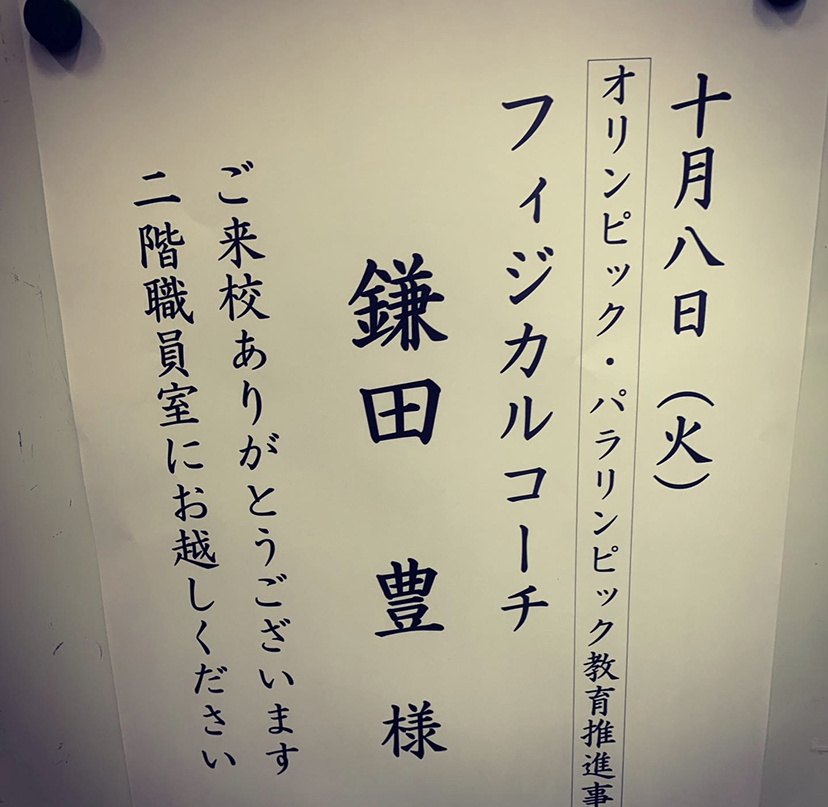 十月八日（火）
オリンピック・パラリンピック教育推進事
フィジカルコーチ
鎌田 豊 様
ご来校ありがとうございます
二階職員室にお越しください